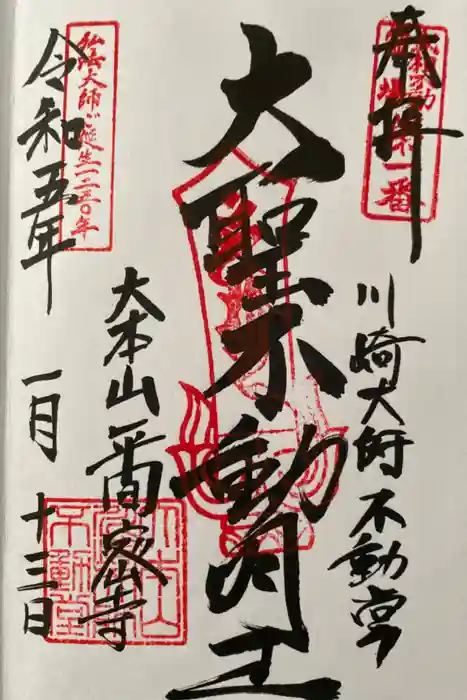 奉拝
第一番
川崎大師不動堂
大聖不動明王
大本山平間寺
弘法大師ご誕生一二五〇年
令和五年
一月十三日